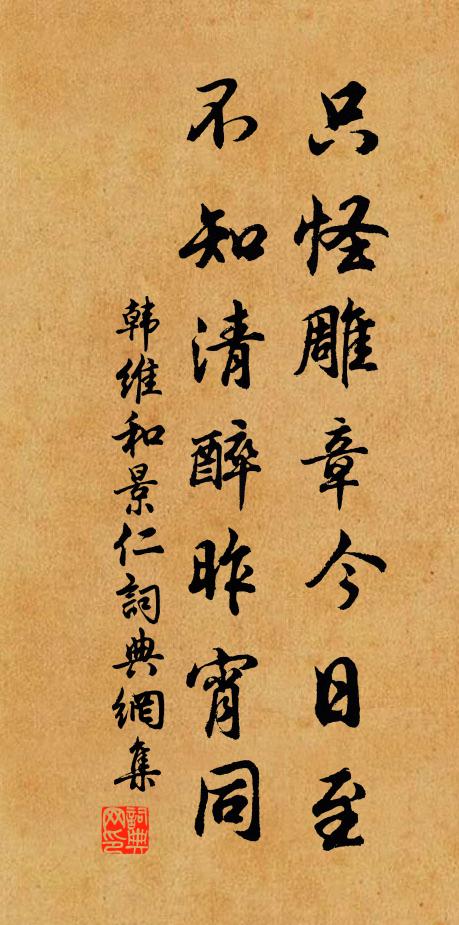 只怪雕章今日至
不知清醉昨宵同
韩维和景仁詞典網集
詞典网印